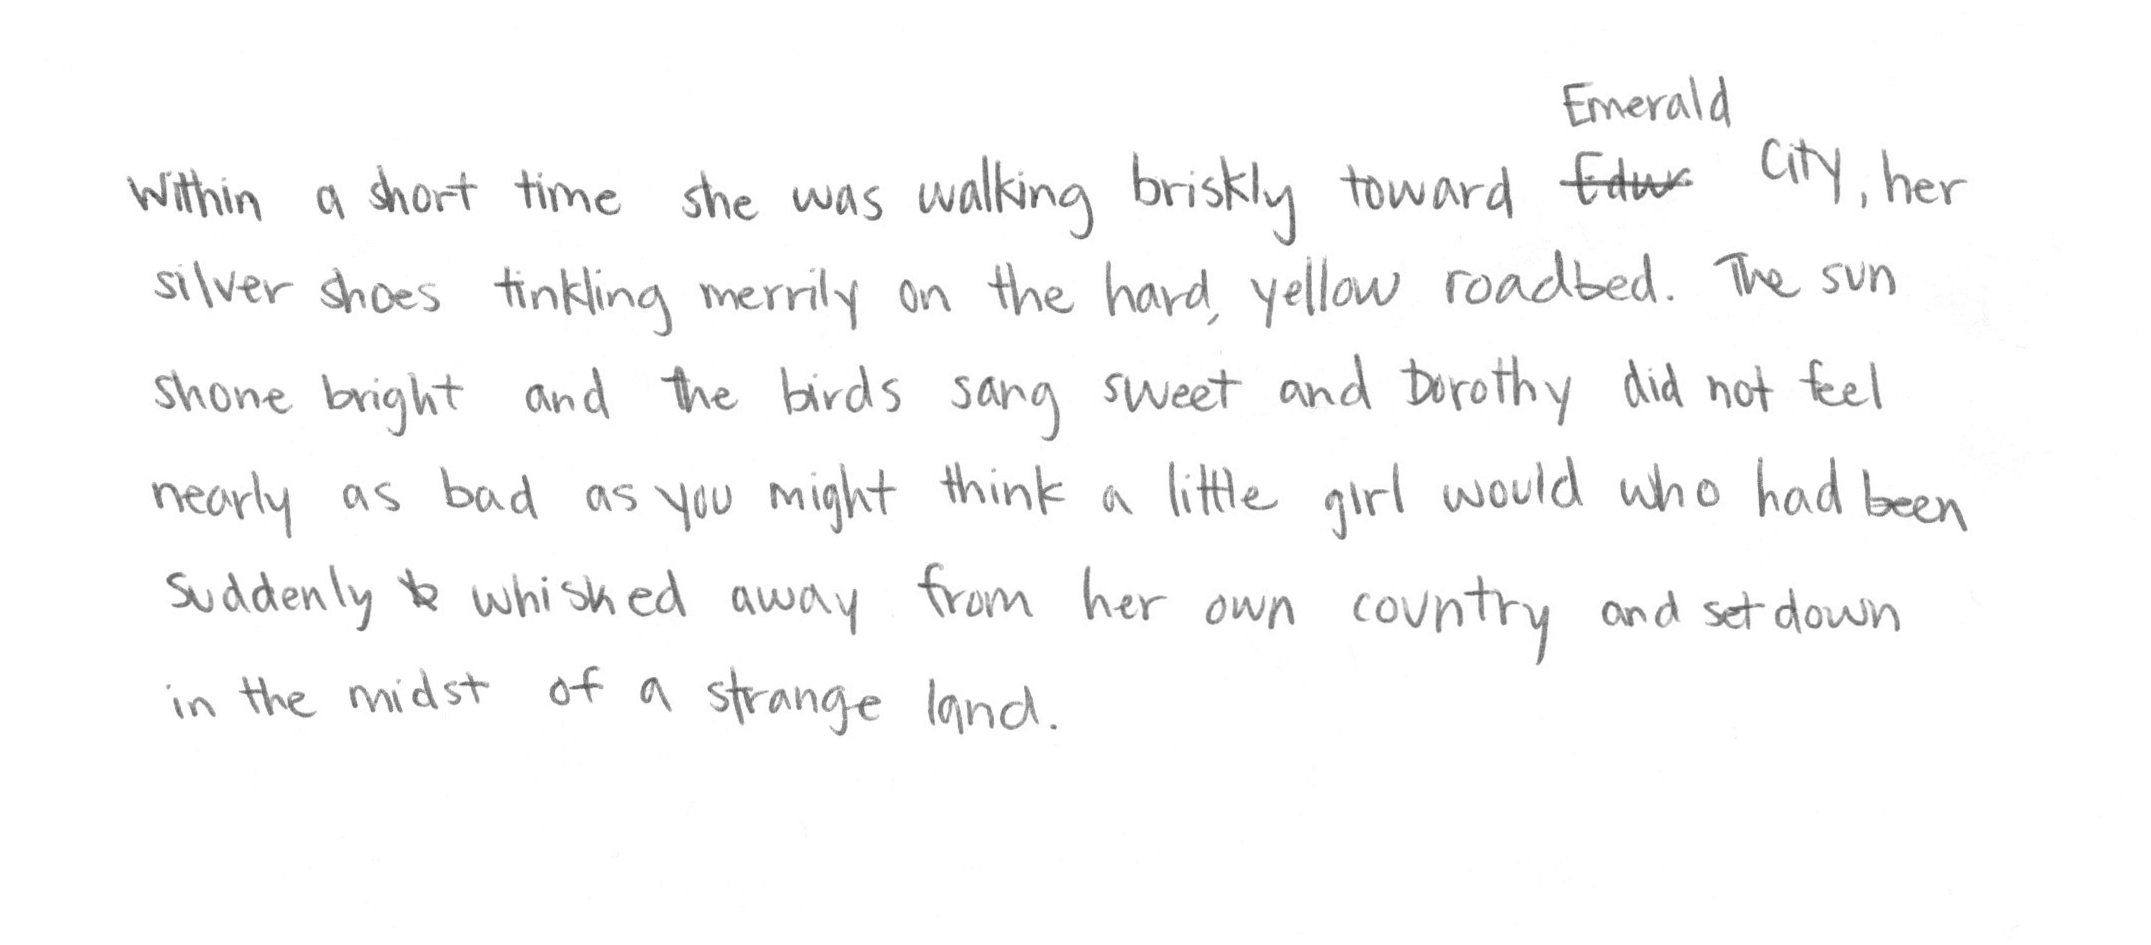 Within a short time she was walking briskly toward Emerald City, her
silver shoes tinkling merrily on the hard, yellow roadbed. The sun
shone bright and the birds sang sweet and Dorothy did not feel
nearly as bad as you might think a little girl would who had been
suddenly whisked away from her own country and set down
in the midst of a strange land.